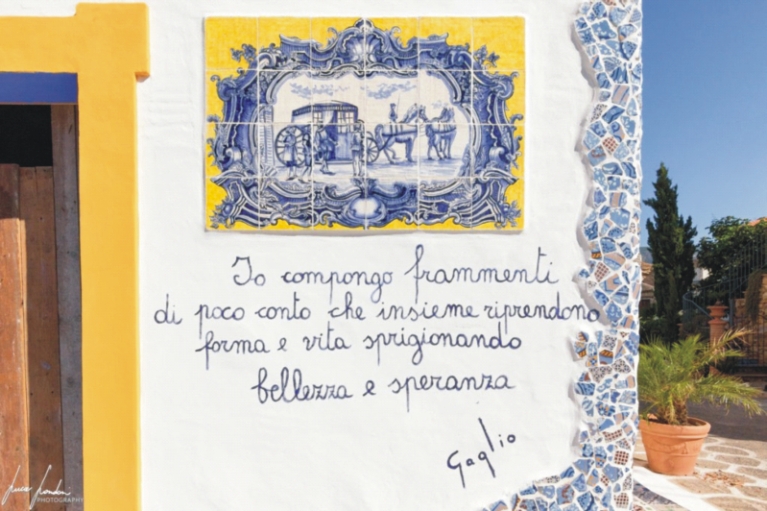 Io compongo frammenti
di poco conto che insieme riprendono
forma e vita sprigionando
bellezza e speranza
Gaglio
PHOTOGRAPHY